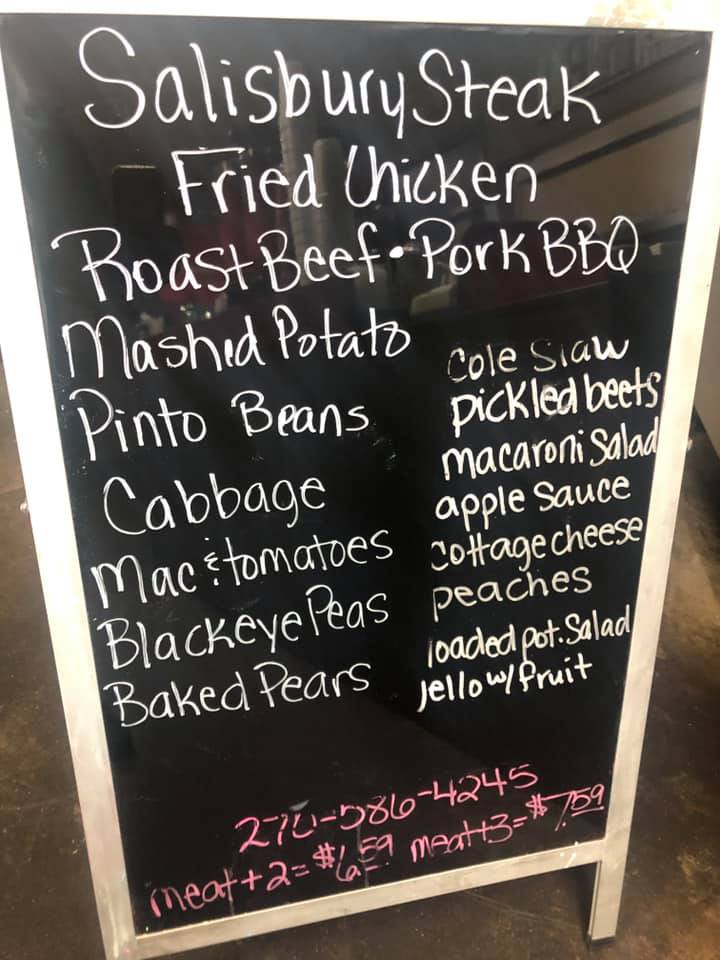 Salisbury Steak
Fried Chicken
Roast Beef • Pork BBQ
Mashed Potato
Pinto Beans
Cabbage
Mac & tomatoes
Blackeye Peas
Baked Pears
Cole Slaw
pickled beets
macaroni Salad
apple Sauce
cottage cheese
peaches
loaded pot. Salad
Jello w/ fruit
270-586-4245
meat + 2 = $6.59 meat + 3 = $7.59